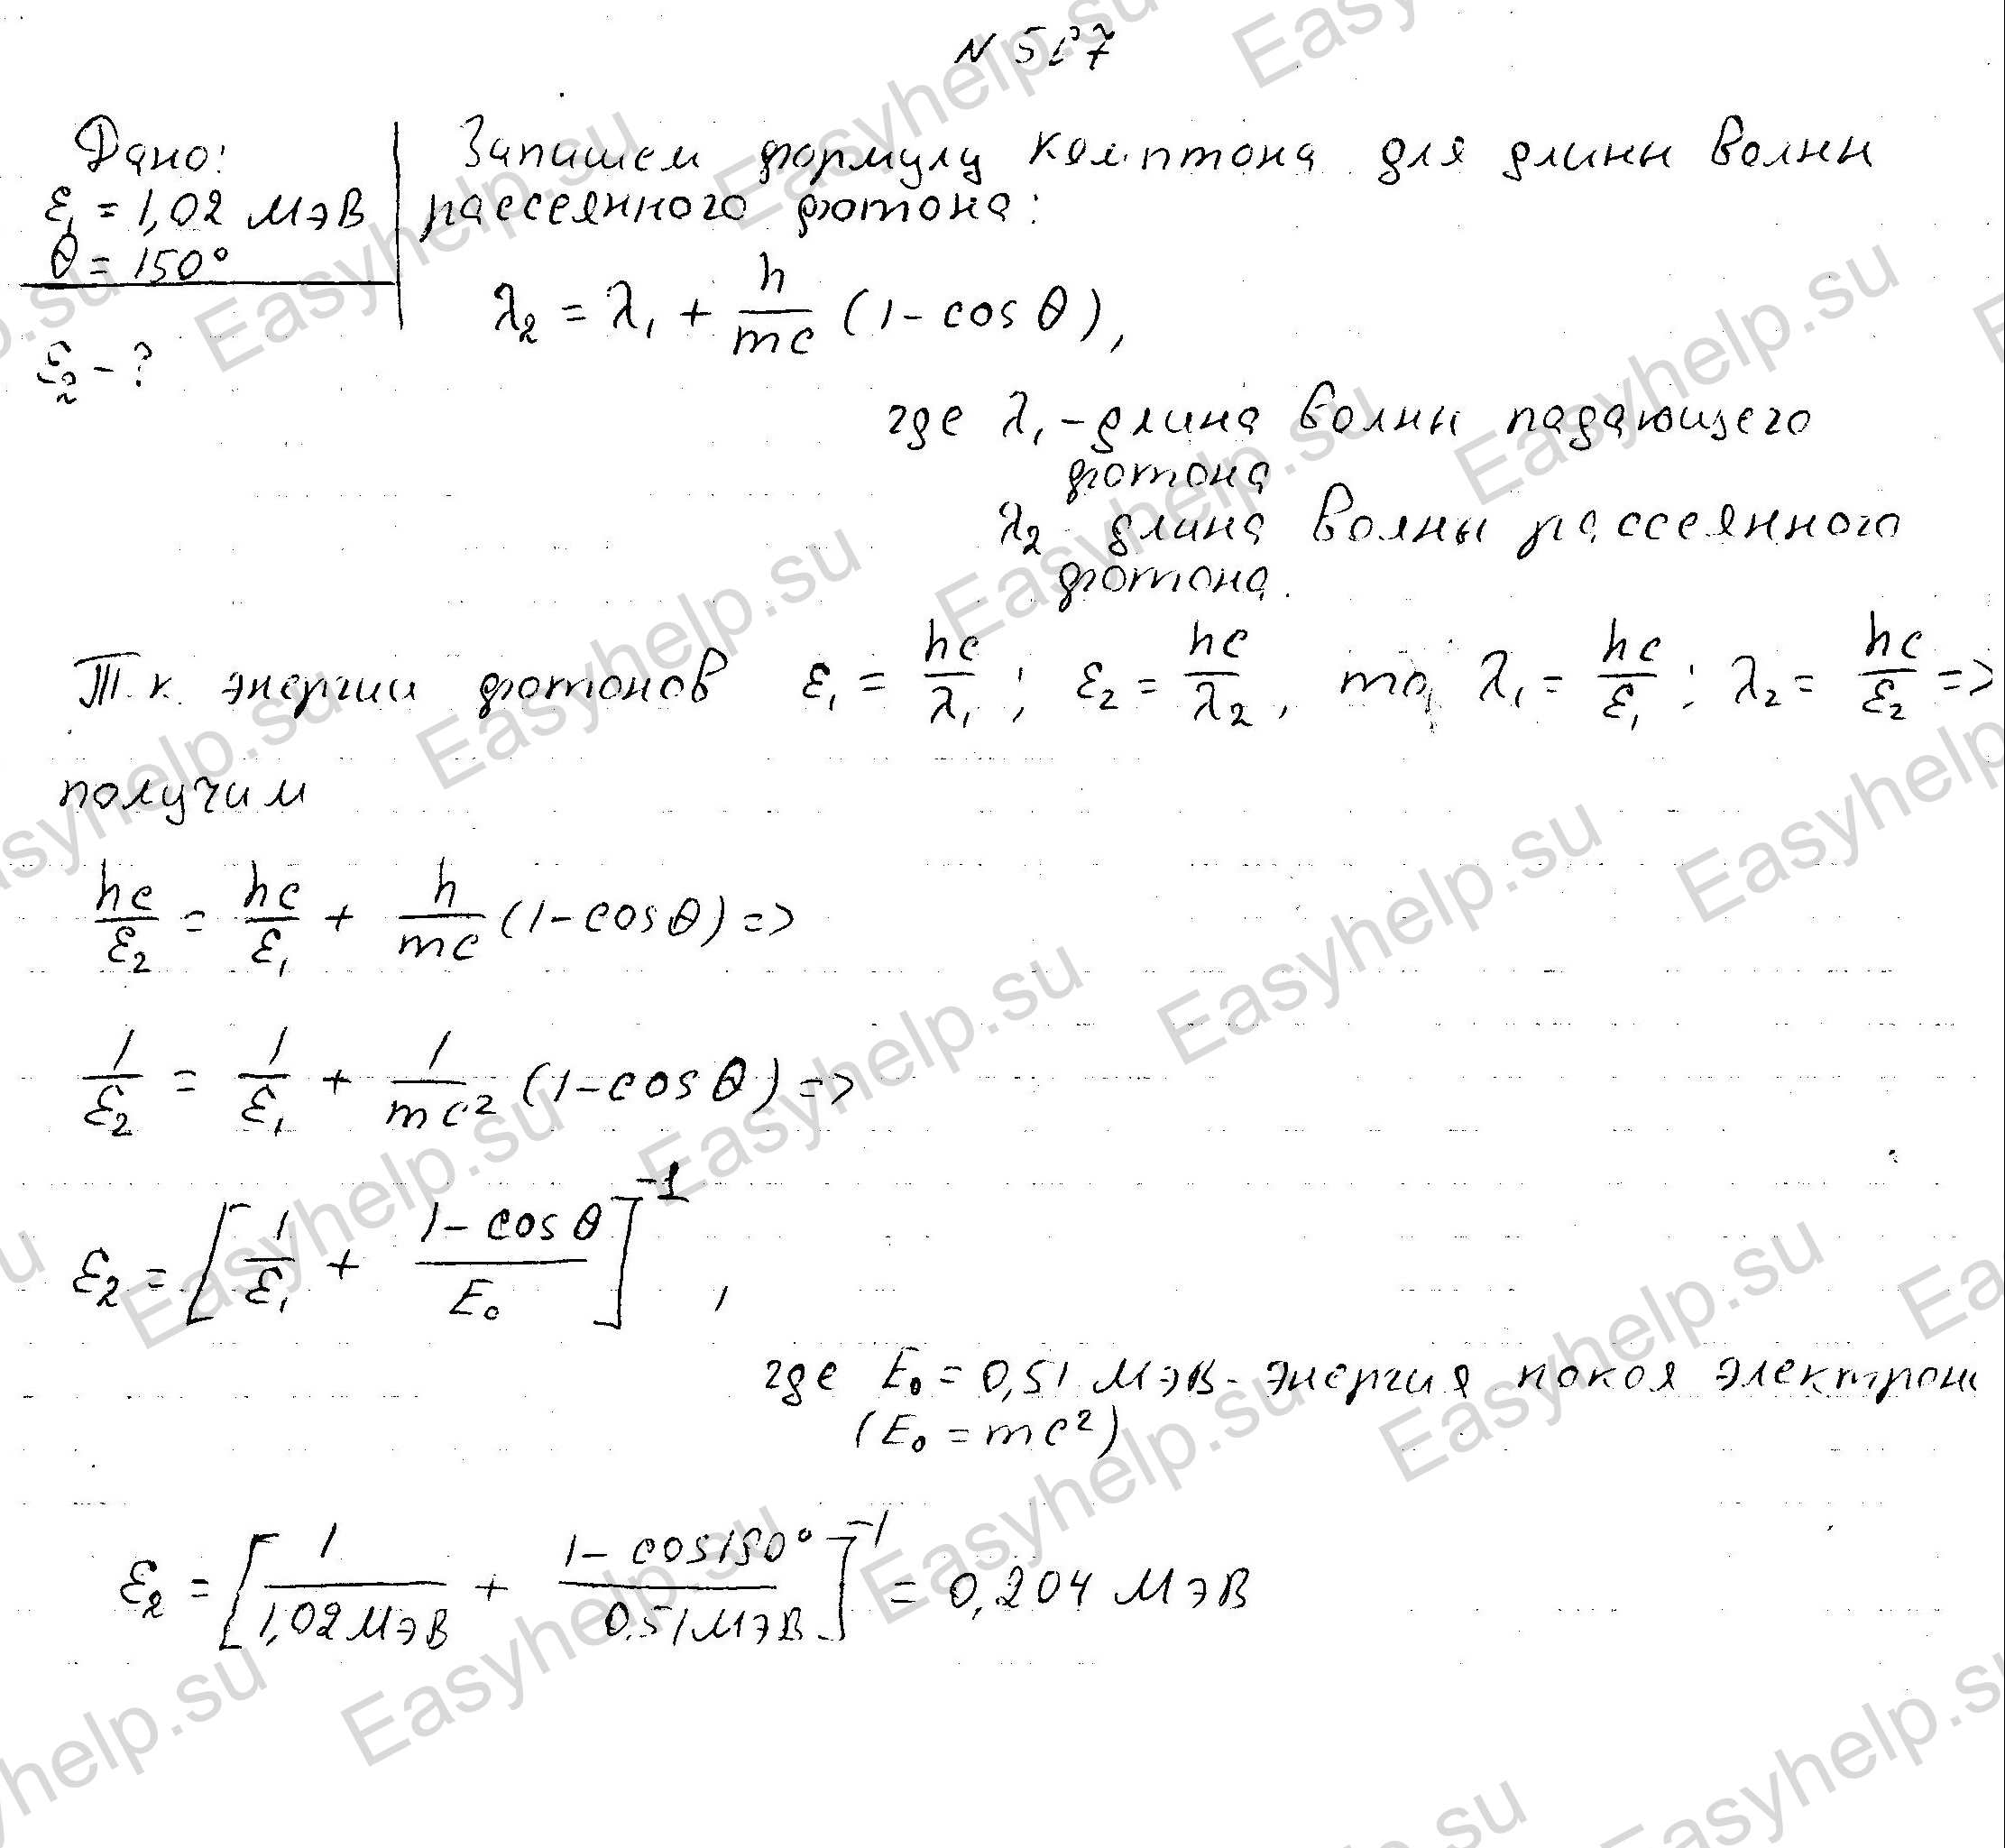 N 527
Дано:
ε₁ = 1,02 МэВ
θ = 150°
ε₂ - ?
Запишем формулу Комптона для длины волны
рассеянного фотона:
λ₂ = λ₁ + h/mc (1 - cos θ),
где λ₁ - длина волны падающего
фотона
λ₂ длина волны рассеянного
фотона.
Т.к. энергии фотонов ε₁ = hc/λ₁ ; ε₂ = hc/λ₂, то, λ₁ = hc/ε₁ ; λ₂ = hc/ε₂ =>
получим
hc/ε₂ = hc/ε₁ + h/mc (1 - cos θ) =>
1/ε₂ = 1/ε₁ + 1/mc² (1 - cos θ) =>
ε₂ = [1/ε₁ + (1 - cos θ)/E₀]⁻¹ ,
где E₀ = 0,51 МэВ - энергия покоя электрон
(E₀ = mc²)
ε₂ = [1/1,02 МэВ + (1 - cos 150°)/0,51 МэВ]⁻¹ = 0,204 МэВ
Easyhelp.su